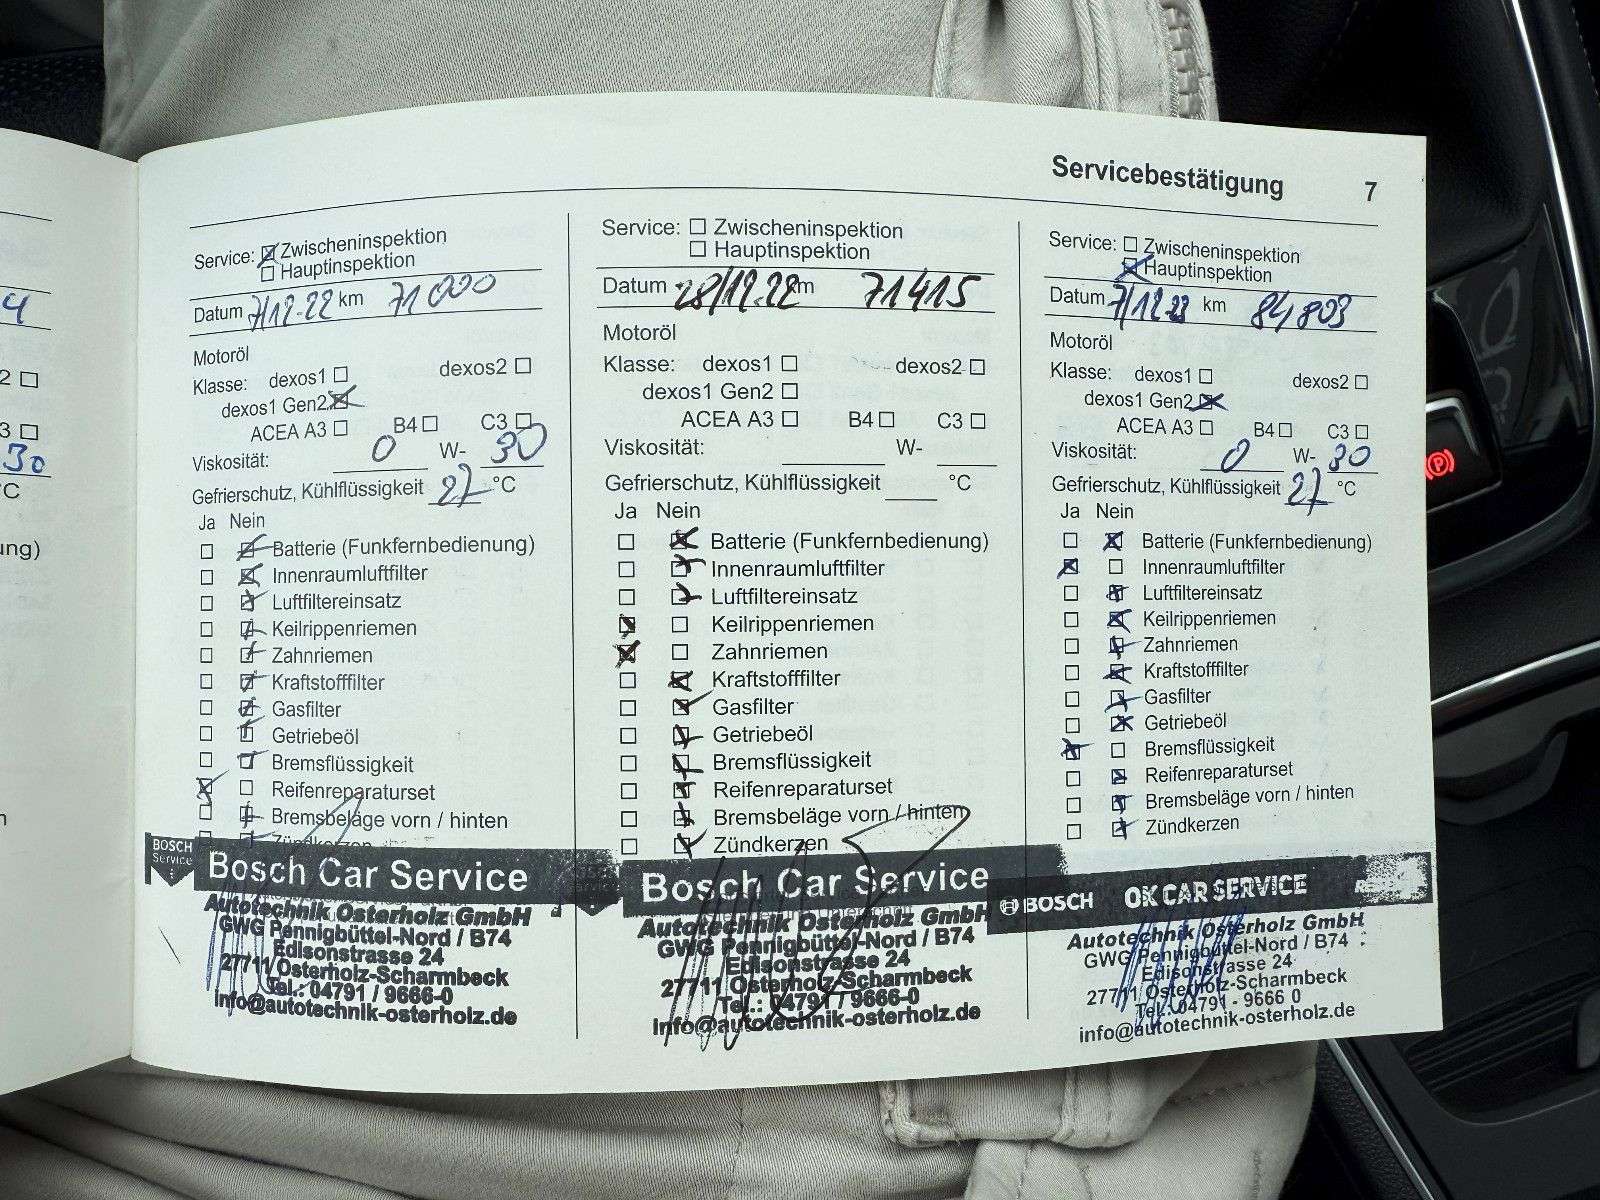 Servicebestätigung 7
Service: Zwischeninspektion
Hauptinspektion
Datum 7/12.22 km 71000
Motoröl
Klasse: dexos1 dexos2
dexos1 Gen2
ACEA A3 B4 C3
Viskosität: 0 W- 30
Gefrierschutz, Kühlflüssigkeit 27 °C
Ja Nein
Batterie (Funkfernbedienung)
Innenraumluftfilter
Luftfiltereinsatz
Keilrippenriemen
Zahnriemen
Kraftstofffilter
Gasfilter
Getriebeöl
Bremsflüssigkeit
Reifenreparaturset
Bremsbeläge vorn / hinten
Zündkerzen
BOSCH
Service
Bosch Car Service
Autotechnik Osterholz GmbH
GWG Pennigbüttel-Nord / B74
Edisonstrasse 24
27711 Osterholz-Scharmbeck
Tel.: 04791 / 9666-0
info@autotechnik-osterholz.de
Service: Zwischeninspektion
Hauptinspektion
Datum 28/12.22 km 71415
Motoröl
Klasse: dexos1 dexos2
dexos1 Gen2
ACEA A3 B4 C3
Viskosität: W-
Gefrierschutz, Kühlflüssigkeit °C
Ja Nein
Batterie (Funkfernbedienung)
Innenraumluftfilter
Luftfiltereinsatz
Keilrippenriemen
Zahnriemen
Kraftstofffilter
Gasfilter
Getriebeöl
Bremsflüssigkeit
Reifenreparaturset
Bremsbeläge vorn / hinten
Zündkerzen
Bosch Car Service
Autotechnik Osterholz GmbH
GWG Pennigbüttel-Nord / B74
Edisonstrasse 24
27711 Osterholz-Scharmbeck
Tel.: 04791 / 9666-0
info@autotechnik-osterholz.de
Service: Zwischeninspektion
Hauptinspektion
Datum 7/12.23 km 84803
Motoröl
Klasse: dexos1 dexos2
dexos1 Gen2
ACEA A3 B4 C3
Viskosität: 0 W- 30
Gefrierschutz, Kühlflüssigkeit 27 °C
Ja Nein
Batterie (Funkfernbedienung)
Innenraumluftfilter
Luftfiltereinsatz
Keilrippenriemen
Zahnriemen
Kraftstofffilter
Gasfilter
Getriebeöl
Bremsflüssigkeit
Reifenreparaturset
Bremsbeläge vorn / hinten
Zündkerzen
BOSCH OK CAR SERVICE
Autotechnik Osterholz GmbH
GWG Pennigbüttel-Nord / B74
Edisonstrasse 24
27711 Osterholz-Scharmbeck
Tel.: 04791 - 9666 0
info@autotechnik-osterholz.de
4
2
3
30
°C
ung)
n
P